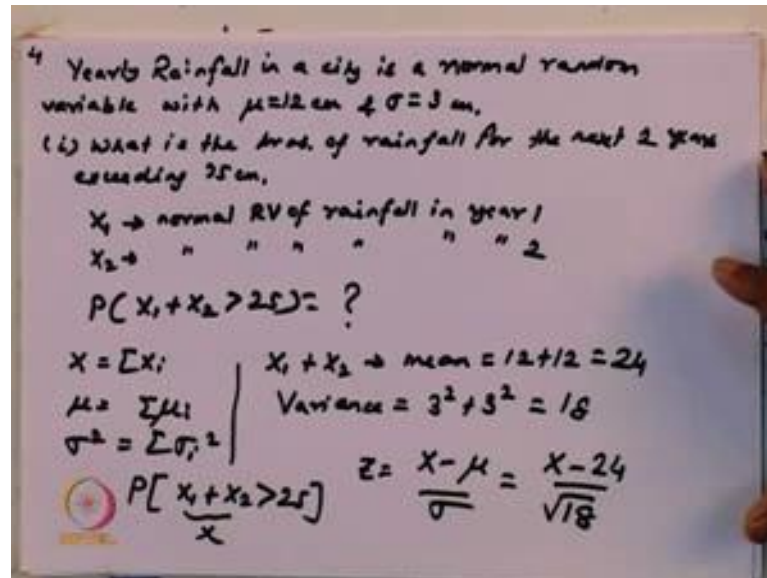 4 Yearly Rainfall in a city is a normal random
variable with μ=12 cm & σ=3 cm.
(i) What is the prob. of rainfall for the next 2 years
exceeding 25 cm.
X₁ → normal RV of rainfall in year 1
X₂ → " " " " " " 2
P(X₁+X₂>25)= ?
X = ΣXᵢ
μ = Σμᵢ
σ² = Σσᵢ²
X₁ + X₂ → mean = 12+12 = 24
Variance = 3²+3² = 18
P[X₁+X₂>25]
X
Z = X-μ/σ = X-24/√18